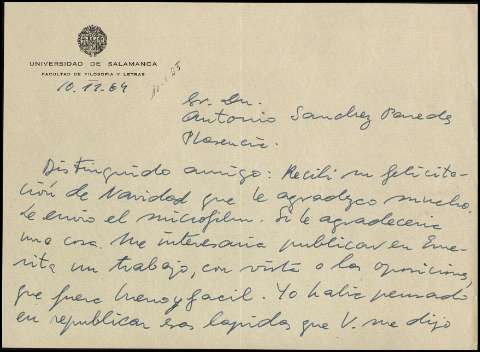 UNIVERSIDAD DE SALAMANCA
FACULTAD DE FILOSOFIA Y LETRAS
10.12.64
Sr. Dn.
Antonio Sanchez Paredes
Plasencia.
Distinguido amigo: Recibi su felicita-
ción de Navidad que le agradezco mucho.
Le envio el microfilm. Si le agradeceria
una cosa. Me interesaria publicar en Eme-
rita un trabajo, con vista a las oposiciones,
que fuera bueno y facil. Yo habia pensado
en republicar esas lapidas que V. me dijo